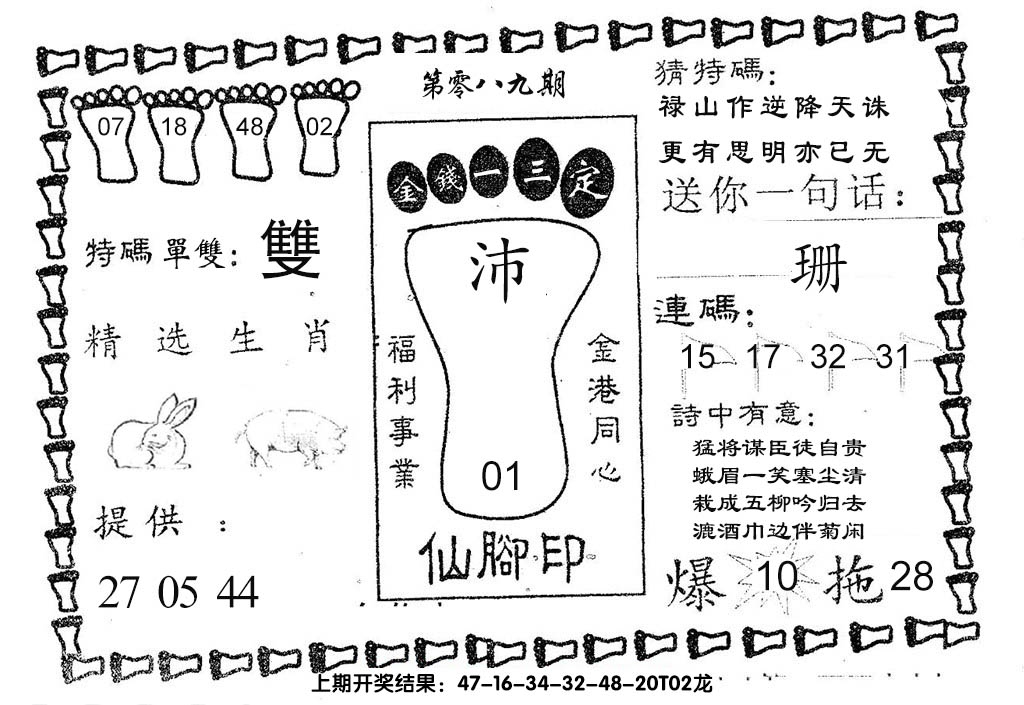 第零八九期
07 18 48 02
特碼單雙：雙
精选生肖
提供：
27 05 44
金錢一三定
沛
福利事業
金港同心
01
仙腳印
猜特碼：
禄山作逆降天诛
更有思明亦已无
送你一句话：
珊
連碼：
15 17 32 31
詩中有意：
猛将谋臣徒自贵
蛾眉一笑塞尘清
栽成五柳吟归去
漉酒巾边伴菊闲
爆 10 拖 28
上期开奖结果：47-16-34-32-48-20T02龙